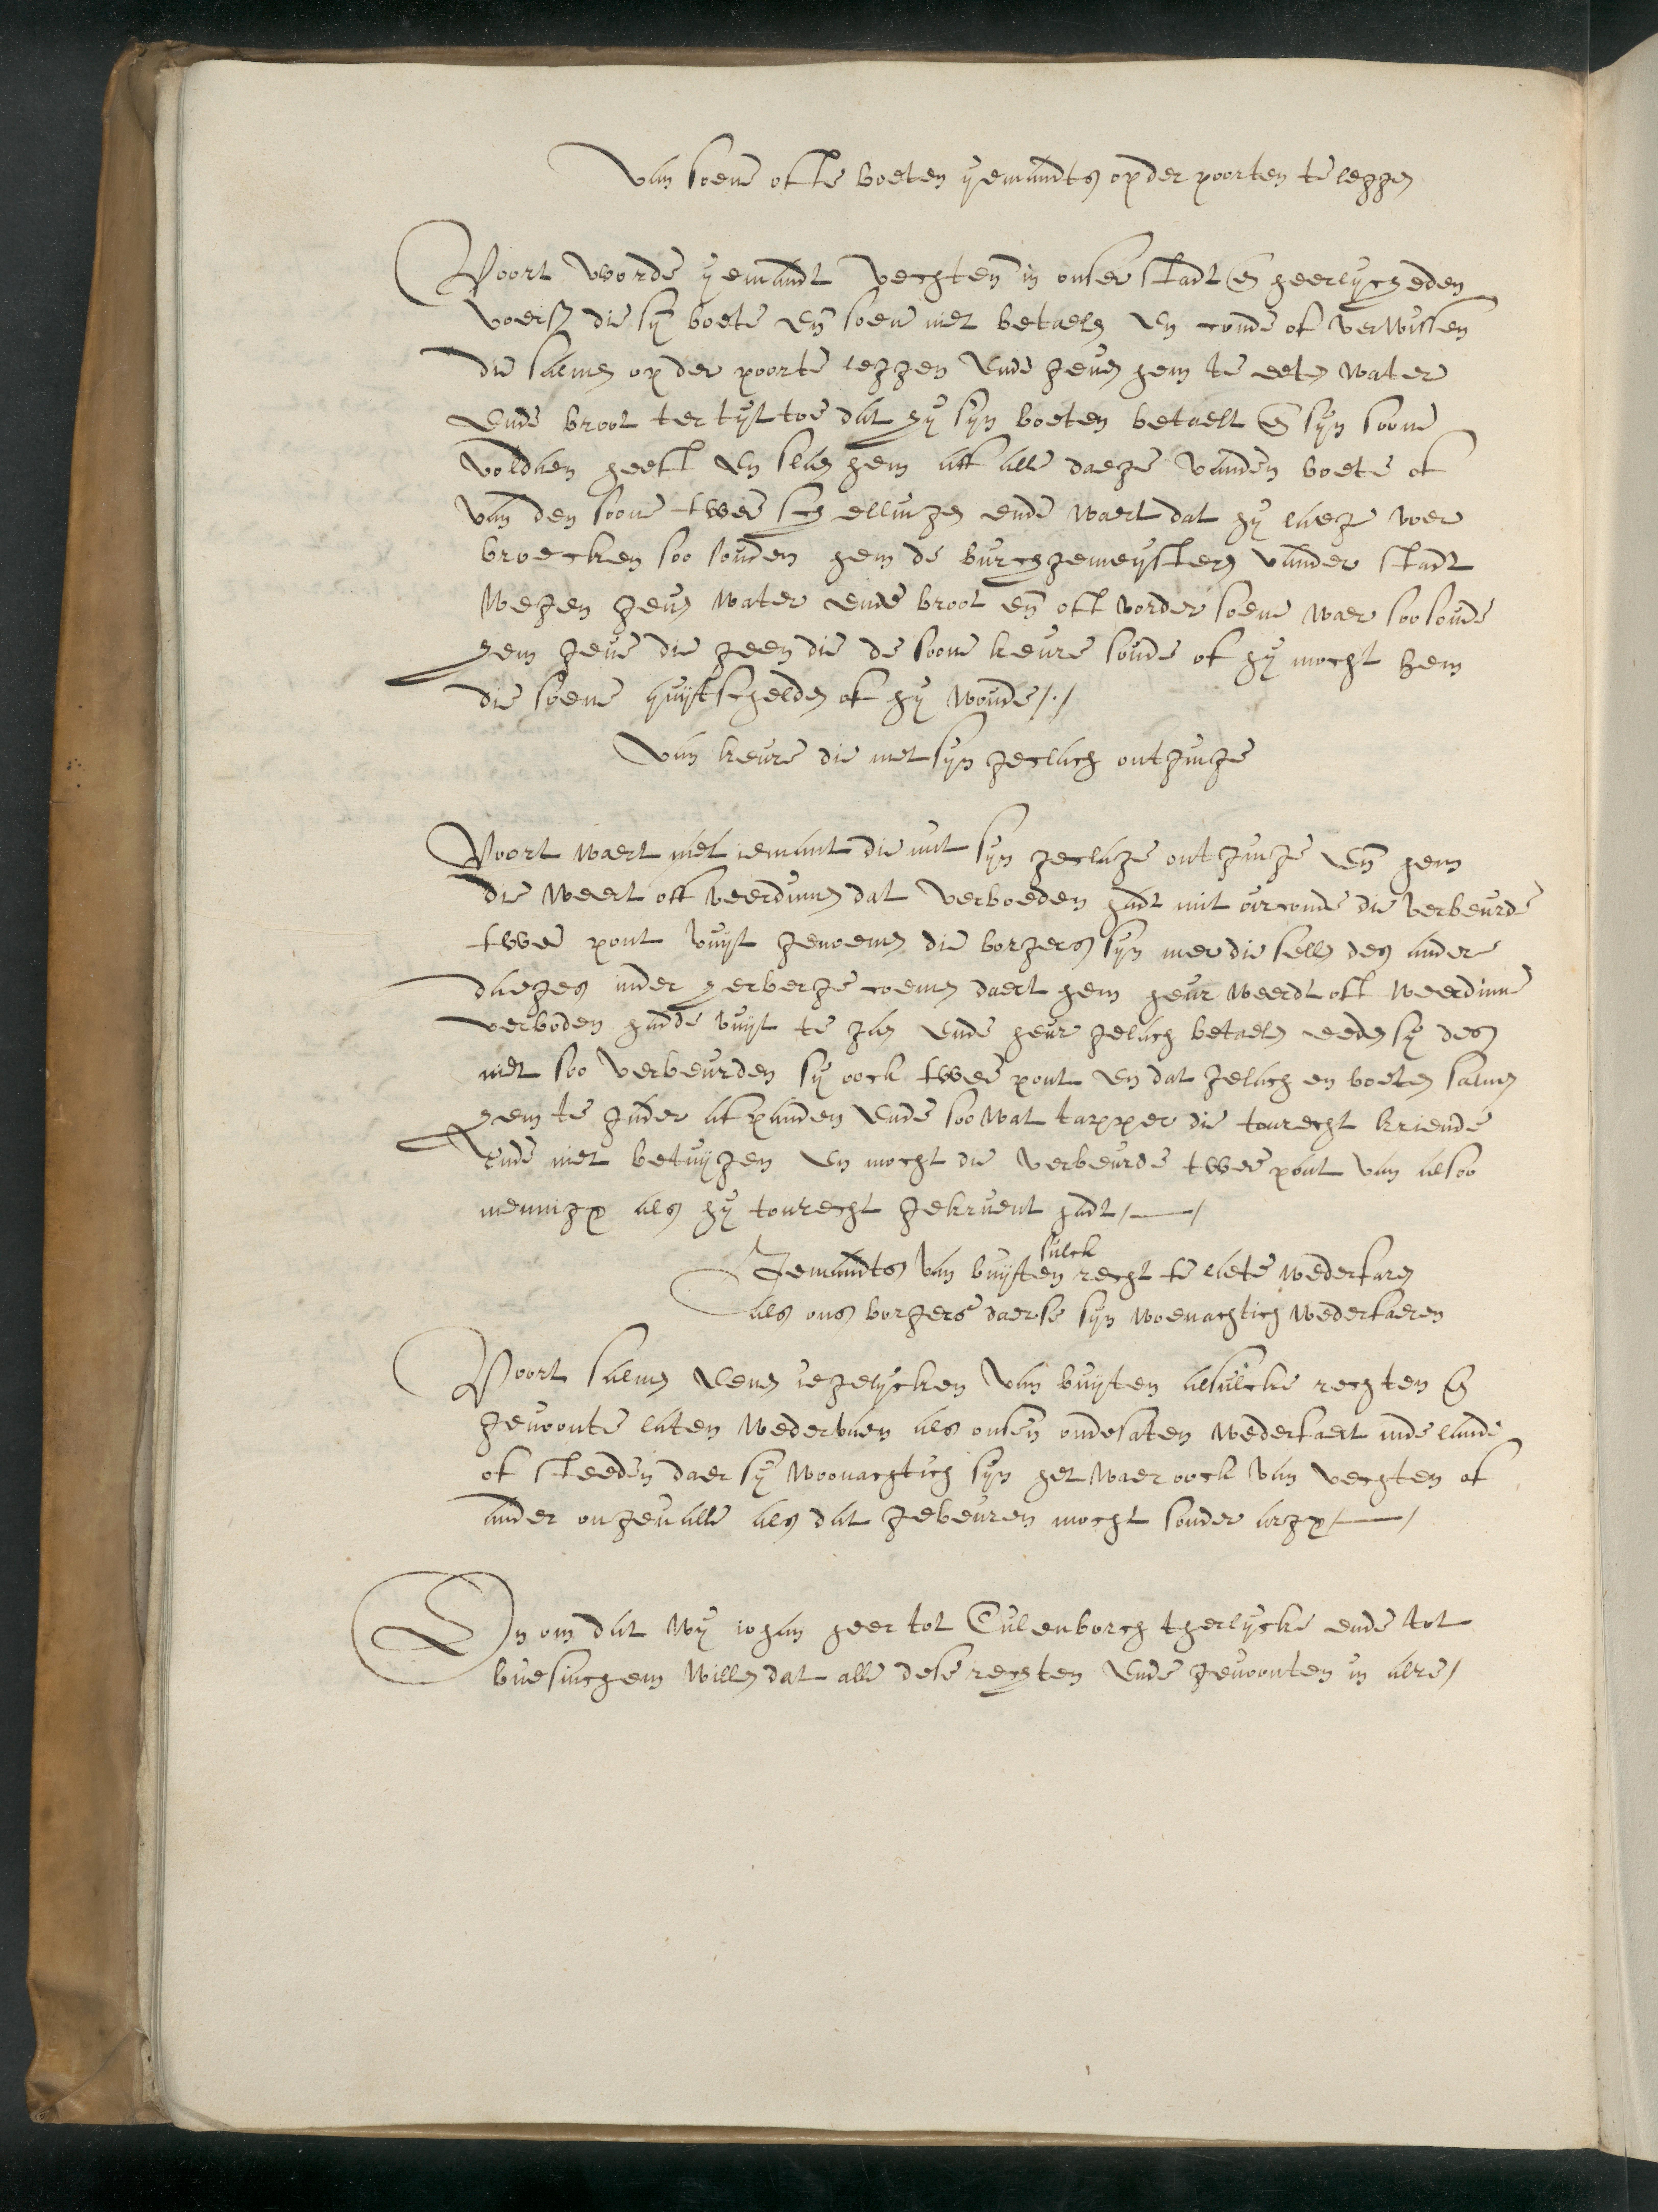 Van soene ofte boeten yemandts op der poorten te leggen
Voort worde yemandt vechten in onser stadt en heerlycheden
voersz die syn boete en soene niet betaelen en conde of verwissen
die salmen op der poorte leggen ende geven hem te eeten water
ende broot ter tyt toe dat hy syn boeten betaelt en syn soone
voldaen heeft en slaen hem aff alle daege vanden boete of
van den soone twee schellinge ende waert dat hy laege voer
broecken soo souden hem de burchgemeysters vander stadt
wegen geven water ende broot en oft vorder soene waer soo soude
hem geve die geen die de soone keure soude of hy mocht hem
die soene quijtschelden of hy woude
Van keure die met syn geelach ontginge
Voort waert met iemant die mit syn geelage ontginge en hem
die weert off weerdinne dat verboeden hadt mit oirconde die verbeurde
twee pont vuyt genoemen die borgers syn mer die sellen des ander
daeges inder herberge coemen daert hem heur weerdt oft weerdinne
verboden hadde vuyt te gaen ende heur gelach betaelen eeden sy des
niet soo verbeurden sy oock twee pont en dat gelach en boeten salmen
hem te gader afpanden ende soo wat tapper die tonrecht kriende
ende niet betuygen en mocht die verbeurde twee pont van alsoo
mennigen als hy tonrecht gekruent hadt
Iemandts van buyten sulck recht te laete wederfaren
als ons borgers daerse syn woenachtich wederfaeren
Voort salmen eenen iegelycken van buyten alsulcke rechten en
gewoonte laten wedervaen als onsen ondesaten wederfaert inde lande
of steeden daer sy woonachtich syn het waer oock van vechten of
ander ongevalle als dat gebeuren mocht sonder argen
En om dat wy iohan heer tot Culenborch therlycke ende tot
buesinchem willen dat alle dese rechten ende gewoonten in alre